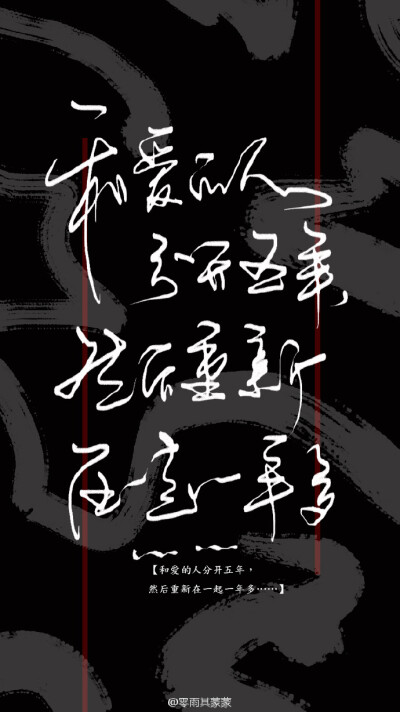 和爱的人
分开五年
然后重新
在一起一年多
……
【和爱的人分开五年，
然后重新在一起一年多……】
@零雨其蒙蒙